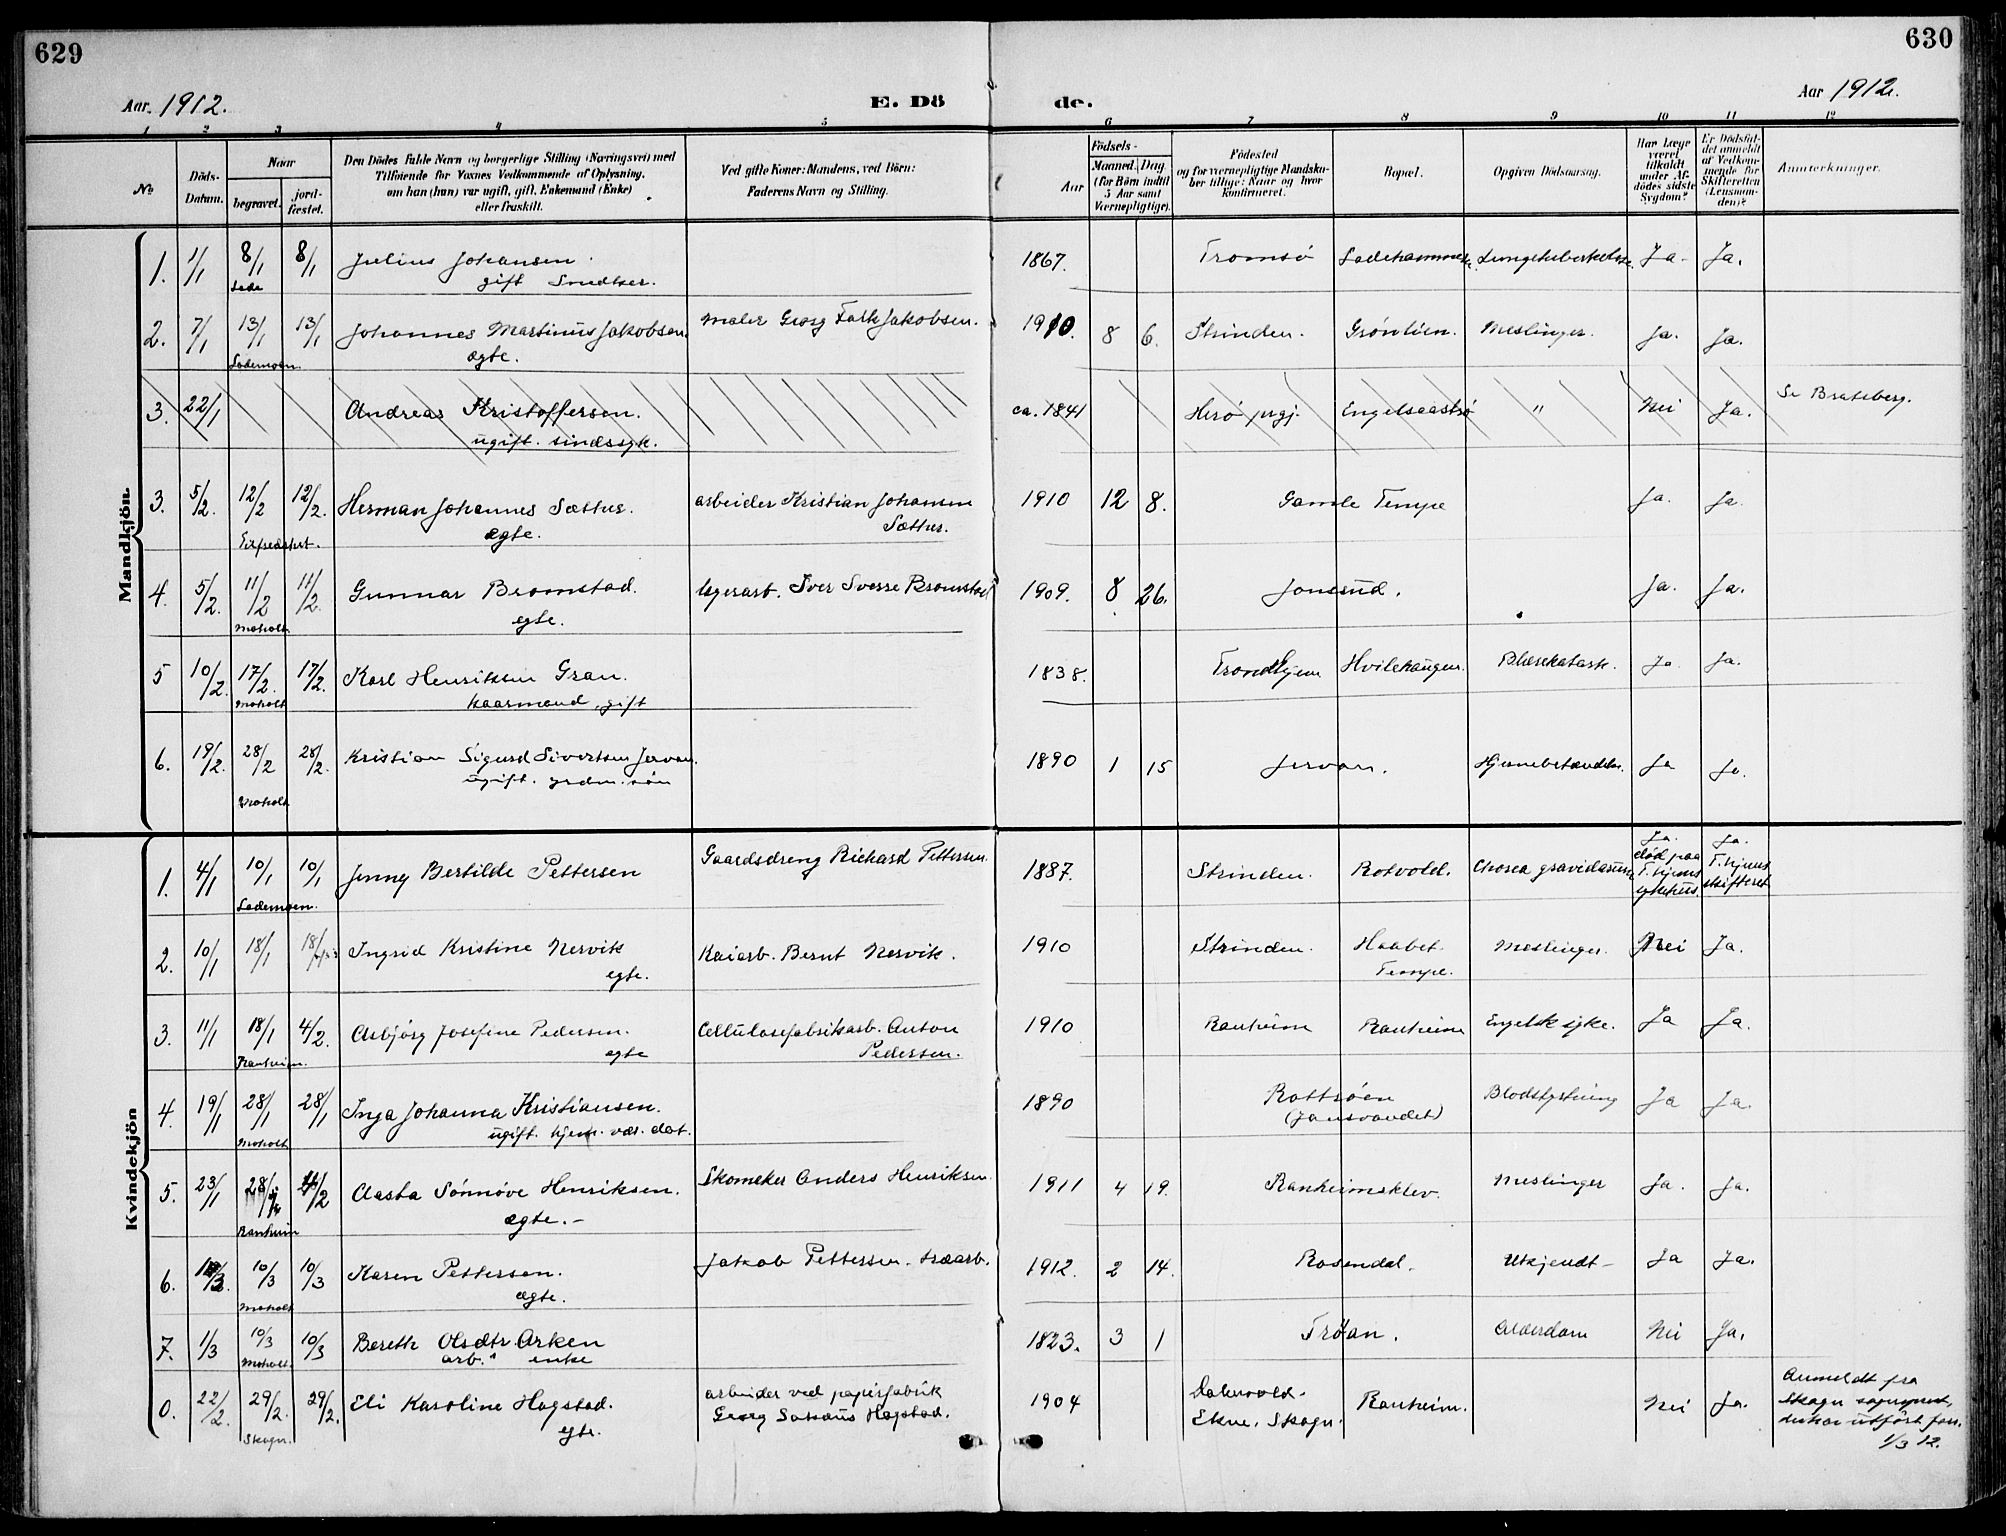 629
630
Aar 1912.
E. Dö
de.
Aar 1912.
1 2 3 4 5 6 7 8 9 10 11 12
No
Döds-Datum.
Naar
begravet.
jordfæstet.
Den Dödes fulde Navn og borgerlige Stilling (Næringsvei) med
Tilföiende for Voxnes Vedkommende af Oplysning,
om han (hun) var ugift, gift, Enkemand (Enke)
eller fraskilt.
Ved gifte Koner: Mandens, ved Börn:
Faderens Navn og Stilling.
Födsels-
Aar
Maaned. Dag
(for Börn indtil
5 Aar samt
Værnepligtige).
Födested
og for værnepligtige Mandskaber tillige: Naar og hvor
konfirmeret.
Bopæl.
Opgiven Dödsaarsag.
Har Læge været tilkaldt under Afdödes sidste Sygdom?
Er Dödsfaldet anmeldt af Vedkommende for Skifteretten (Lensmanden)?
Anmærkninger.
Mandkjön.
1. 1/1 8/1 8/1 Julius Johansen. 1867. Tromsö Ladehammeren. Lungetuberkulose. Ja. Ja.
Lade gift Smedker.
2. 7/1 13/1 13/1 Johannes Martinus Jakobsen. Maler Georg Falk Jakobsen. 1910. 8 6. Strinden. Grönlien. Meslinger. Ja. Ja.
Lademoen. ægte.
3. 22/1 Andreas Kristoffersen. ca. 1841 Herö prgj. Engelsaastrø " Nei Ja. Se Bratsberg.
ugift. sindssyk.
3. 5/2. 12/2 12/2. Herman Johannes Sæther. arbeider Kristian Johansen 1910 12 8. Gamle Tempe Ja. Ja.
ægte. Sæther.
4. 5/2. 11/2 11/2. Gunnar Bromstad. Iver Sverre Bromstad 1909. 8 26. Jonsrud. Ja. Ja.
Moholt egte.
5 10/2. 17/2. 17/2. Karl Henriksen Gran. 1838. Trondhjem Hvilehaugen. Blærekatarh. Ja. Ja.
Moholt kaarmand, gift
6. 19/2. 28/2 28/2. Kristian Sigurd Sivertsen Jervan. 1890 1 15 Jervan. Hjernebetændelse. Ja Ja.
Moholt ugift. grdm. søn
Kvindekjön
1. 4/1 10/1 10/1 Jenny Bertilde Pettersen Gaardsdreng Richard Pettersen. 1887. Strinden. Rotvold. Chorea gravidarum Ja. død paa T.hjems sykehus. Ja. T.hjems skifteret
Lademoen.
2. 10/1 18/1 18/1 Ingrid Kristine Nervik Kaiarb. Bernt Nervik. 1910 Strinden. Haabet. Meslinger. Nei Ja.
egte. Tempe.
3. 11/1 18/1 4/2. Asbjörg Josefine Pedersen. Cellulosefabrikarb. Anton 1910 Ranheim Ranheim Engelsk syke. Ja Ja.
Ranheim. egte Pedersen.
4. 19/1 28/1 28/1 Inga Johanna Kristiansen. 1890 Rottrøen Blodstyrtning Ja Ja.
Moholt ugift. hjem. vær. dat. (Jansvandet)
5. 23/1 28/1 4/2 Aasta Sønnøve Henriksen. Skomaker Anders Henriksen. 1911 4 19. Ranheimsklev. Meslinger Ja. Ja.
Ranheim ægte.-
6. 10/3 10/3 Karen Pettersen. Jakob Pettersen. træarb. 1912. 2 14. Rosendal. Utkjendt- Ja Ja.
Moholt ægte.
7. 1/3 10/3 10/3 Bereth Olsdtr. Arken 1823. 3 1 Trøan. Alderdom Nei Ja.
Moholt. arb. enke
0. 22/2. 29/2. 29/2. Eli Karoline Hagstad. arbeider ved papirfabrik 1904 Ranheim. Nei Ja. Anmeldt fra
Skogn. egte. Georg Hagstad. Ekne, Skogn. Skogn sogneprest,
1/3 12.